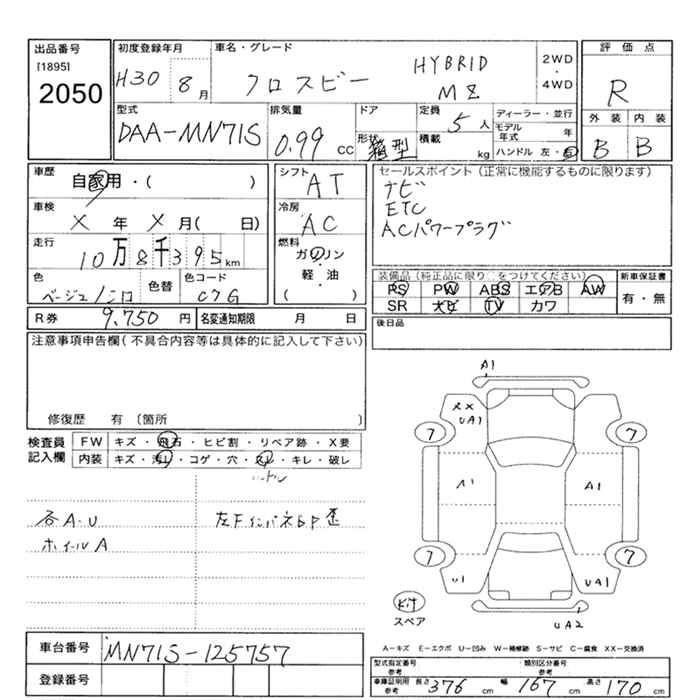 出品番号
[1895]
2050
初度登録年月
H30 8月
車名・グレード
クロスビー HYBRID MZ
2WD
・
4WD
評価点
R
外装 内装
B B
型式
DAA-MN71S
排気量
0.99 CC
ドア
形状 箱型
定員 5人
積載 kg
ディーラー・並行
モデル年式 年
ハンドル 左・右
車歴 自家用・( )
車検 X年X月( 日)
走行 10万8千395km
色 ベージュ/シロ
色替
色コード C7G
シフト AT
冷房 AC
燃料
ガソリン
軽・油
( )
セールスポイント(正常に機能するものに限ります)
ナビ
ETC
ACパワープラグ
装備品(純正品に限り○をつけてください)
PS PW ABS エアB AW
SR ナビ TV カワ
新車保証書
有・無
後日品
R券 9,750円
名変通知期限 月 日
注意事項申告欄(不具合内容等は具体的に記入して下さい)
修復歴 有〔箇所
検査員記入欄
FW キズ・飛石・ヒビ割・リペア跡・X要
内装 キズ・汚レ・コゲ・穴・スレ・キレ・破レ
各A・U
ホイールA
左FインパネBP歪
A1
XX
UA1
7 7
A1 A1
7 7
U1 UA1
Kit
スペア
UA2
A-キズ E-エクボ U-凹み W-補修跡 S-サビ C-腐食 XX-交換済
車台番号 MN71S-125757
登録番号
型式指定番号 参考
類別区分番号 参考
車庫証明用 参考
長さ 376 cm 幅 167 cm 高さ 170 cm